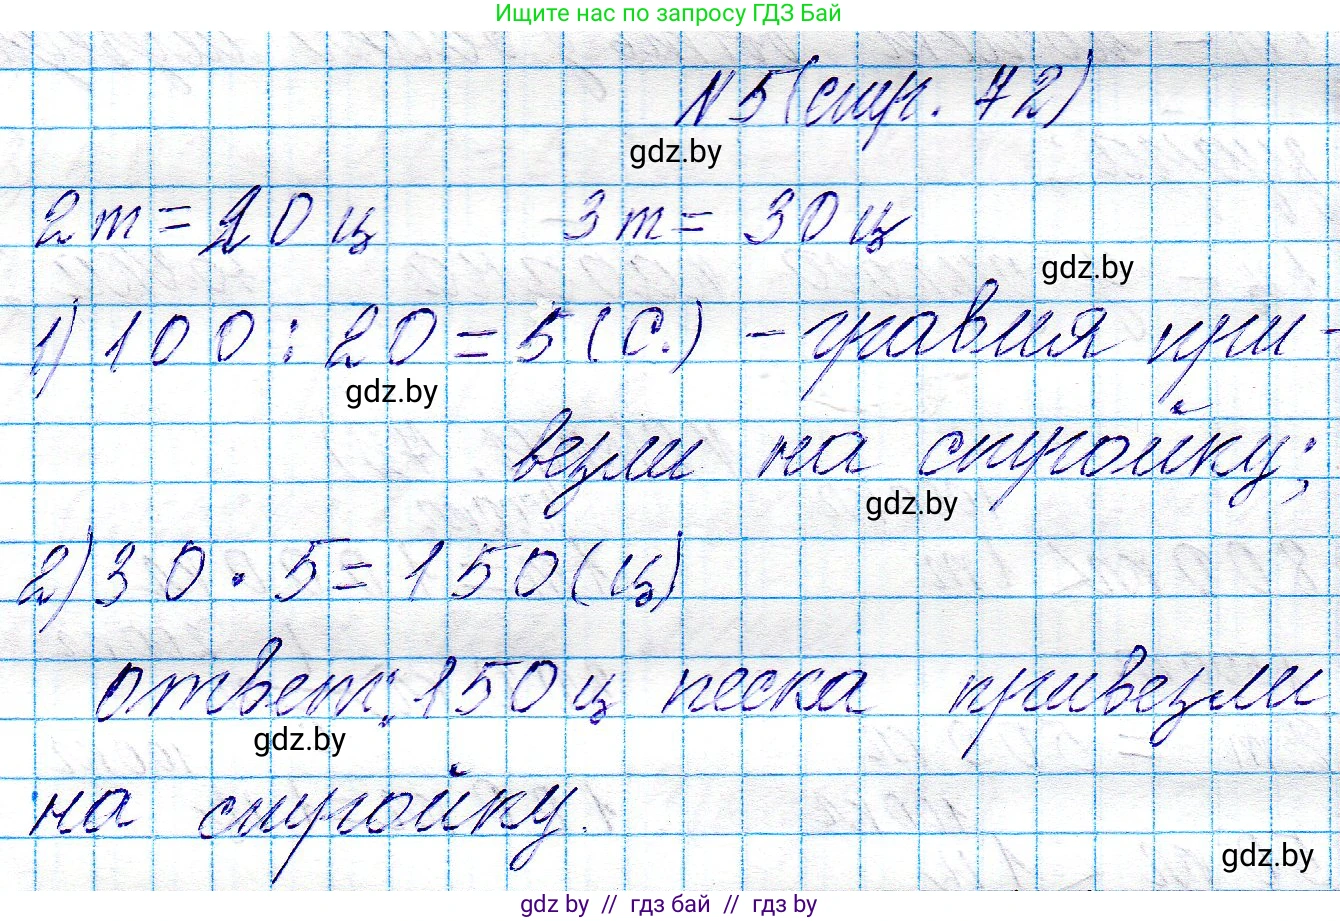 Ищите нас по запросу ГДЗ Бай
№5(стр. 72)
gdz.by
2т=20ц 3т= 30ц
gdz.by
1) 100:20=5(с.) - гравия при-
gdz.by
везли на стройку;
gdz.by
2) 30·5=150(ц)
ответ: 150ц песка привезли
gdz.by
на стройку.
gdz.by
gdz by // гдз бай // gdz by